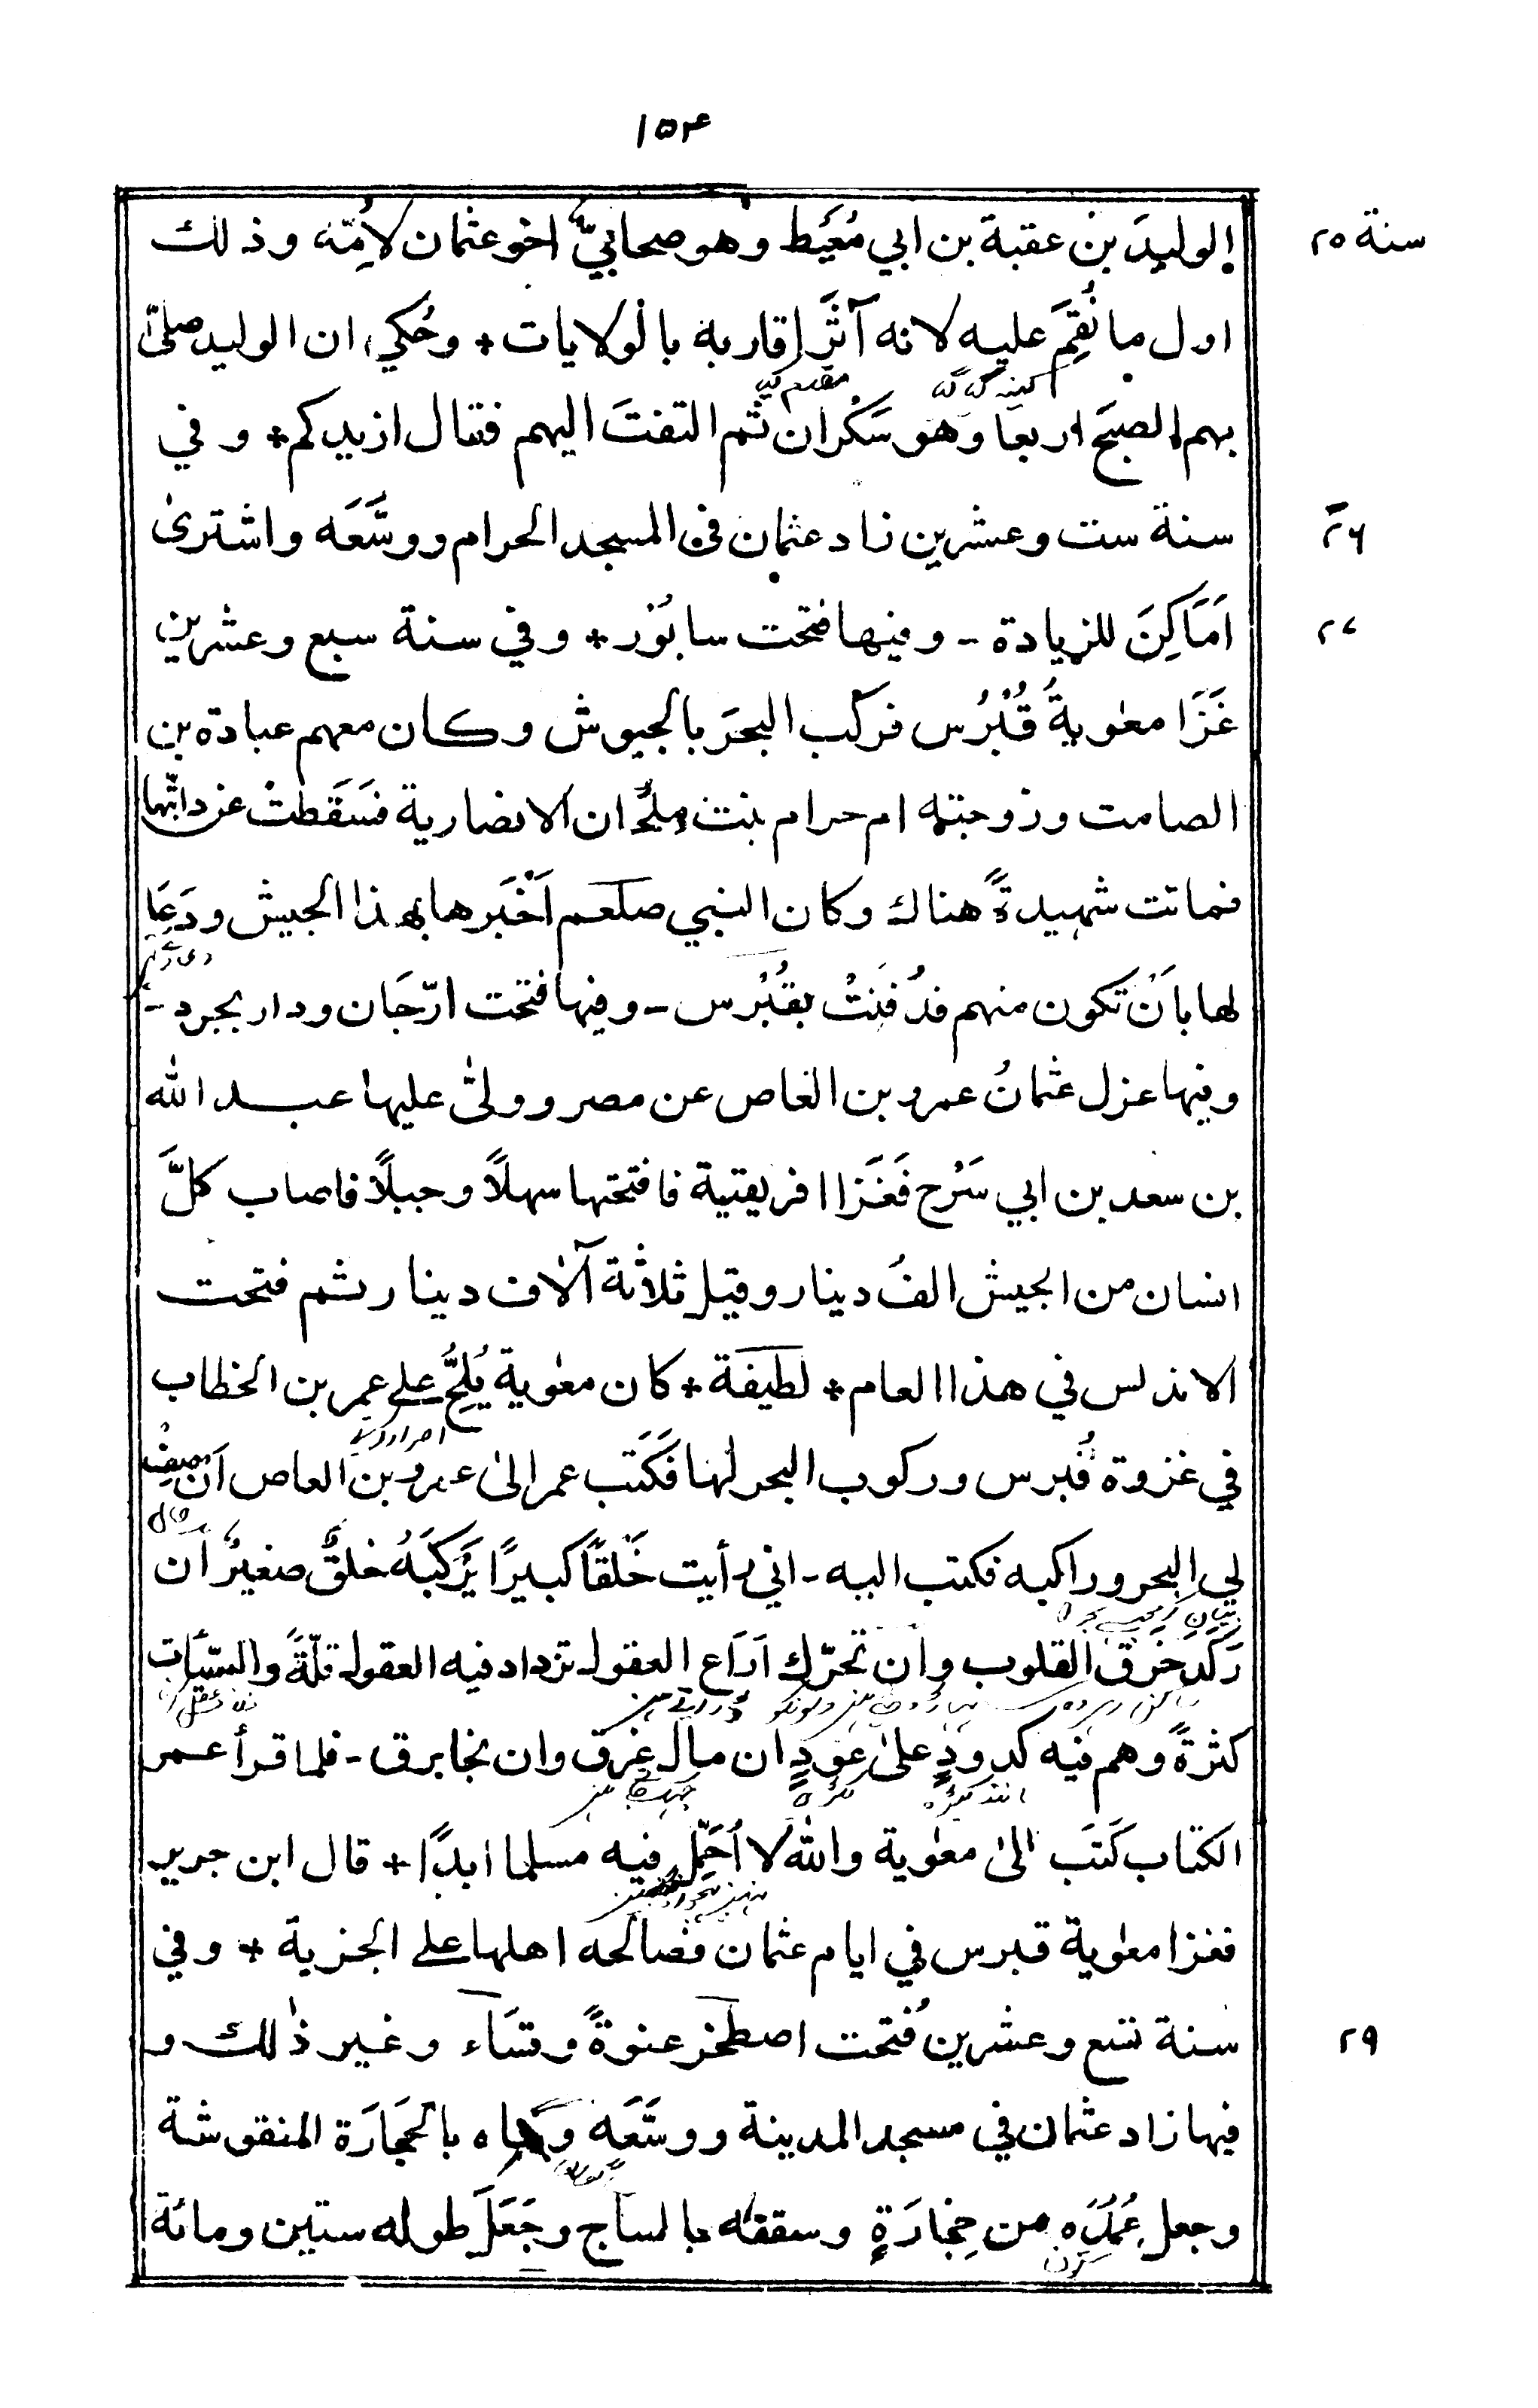 ١٥٤
سنة ٢٥
الوليدَ بن عقبة بن ابي مُعَيْط وهو صحابيٌّ اخو عثمان لاُمّه وذلك
اول ما نُقِمَ عليه لانه آثَرَ اقاربه بالولايات * وحُكي ان الوليد صلىّ
بهم الصبحَ اربعا وهو سَكْران ثم التفتَ اليهم فقال ازيدكم * و في
٢٦
سنة ست وعشرين زاد عثمان فى المسجد الحرام ووسَّعَه واشترىٰ
٢٧
اَمَاكِنَ للزيادة - وفيها فتحت سابُوْر * وفي سنة سبع وعشرين
غَزَا معٰويةُ قُبْرُس فركب البحرَ بالجيوش وكان معهم عبادة بن
الصامت وزوجته ام حرام بنت مِلْحَان الانصارية فسَقَطتْ عن دابّتها
فماتت شهيدةً هناك وكان النبي صلعم اَخْبَرها بهذا الجيش ودَعَا
لها باَنْ تكون منهم فدُفِنَتْ بقُبْرُس - وفيها فتحت ارّجَان ودار بجرد -
وفيها عزل عثمانُ عمرو بن العاص عن مصر وولىّٰ عليها عبد الله
بن سعد بن ابي سَرْح فَغَزَا افريقية فافتتحها سهلاً وجبلاً فاصاب كلَّ
انسان من الجيش الفُ دينار وقيل ثلاثة آلاف دينار ثم فتحت
الاندلس في هذا العام * لطيفة * كان معٰوية يُلِحُّ على عمر بن الخطاب
في غزوة قُبرس وركوب البحر لها فَكَتَب عمر الىٰ عمرو بن العاص اَنْ صِفْ
لي البحر وراكبه فكتب اليه - اني رأيت خَلْقًا كبيرًا يَرْكَبَهُ خلقٌ صغيرٌ ان
رَكَد خرق القلوب وان تحرّك اَرَاع العقول تزداد فيه العقول قلّةً والسيّئات
كثرةً وهم فيه كدودٍ علىٰ عودٍ ان مال غرق وان نجا برق - فلما قرأ عمر
الكتاب كَتَبَ الىٰ معٰوية والله لا اُحَمِّل فيه مسلما ابدًا * قال ابن جرير
فغزا معٰوية قبرس في ايام عثمان فصالحه اهلها على الجزية * و في
٢٩
سنة تسع وعشرين فُتحت اصطخر عنوةً وفسَاء وغير ذٰلك و
فيها زاد عثمان في مسجد المدينة ووسَّعَه بالحجَارَة المنقوشة
وجعل عُمُدَه من حِجَارَةٍ وسقفه بالساج وجَعَلَ طوله ستين ومائة